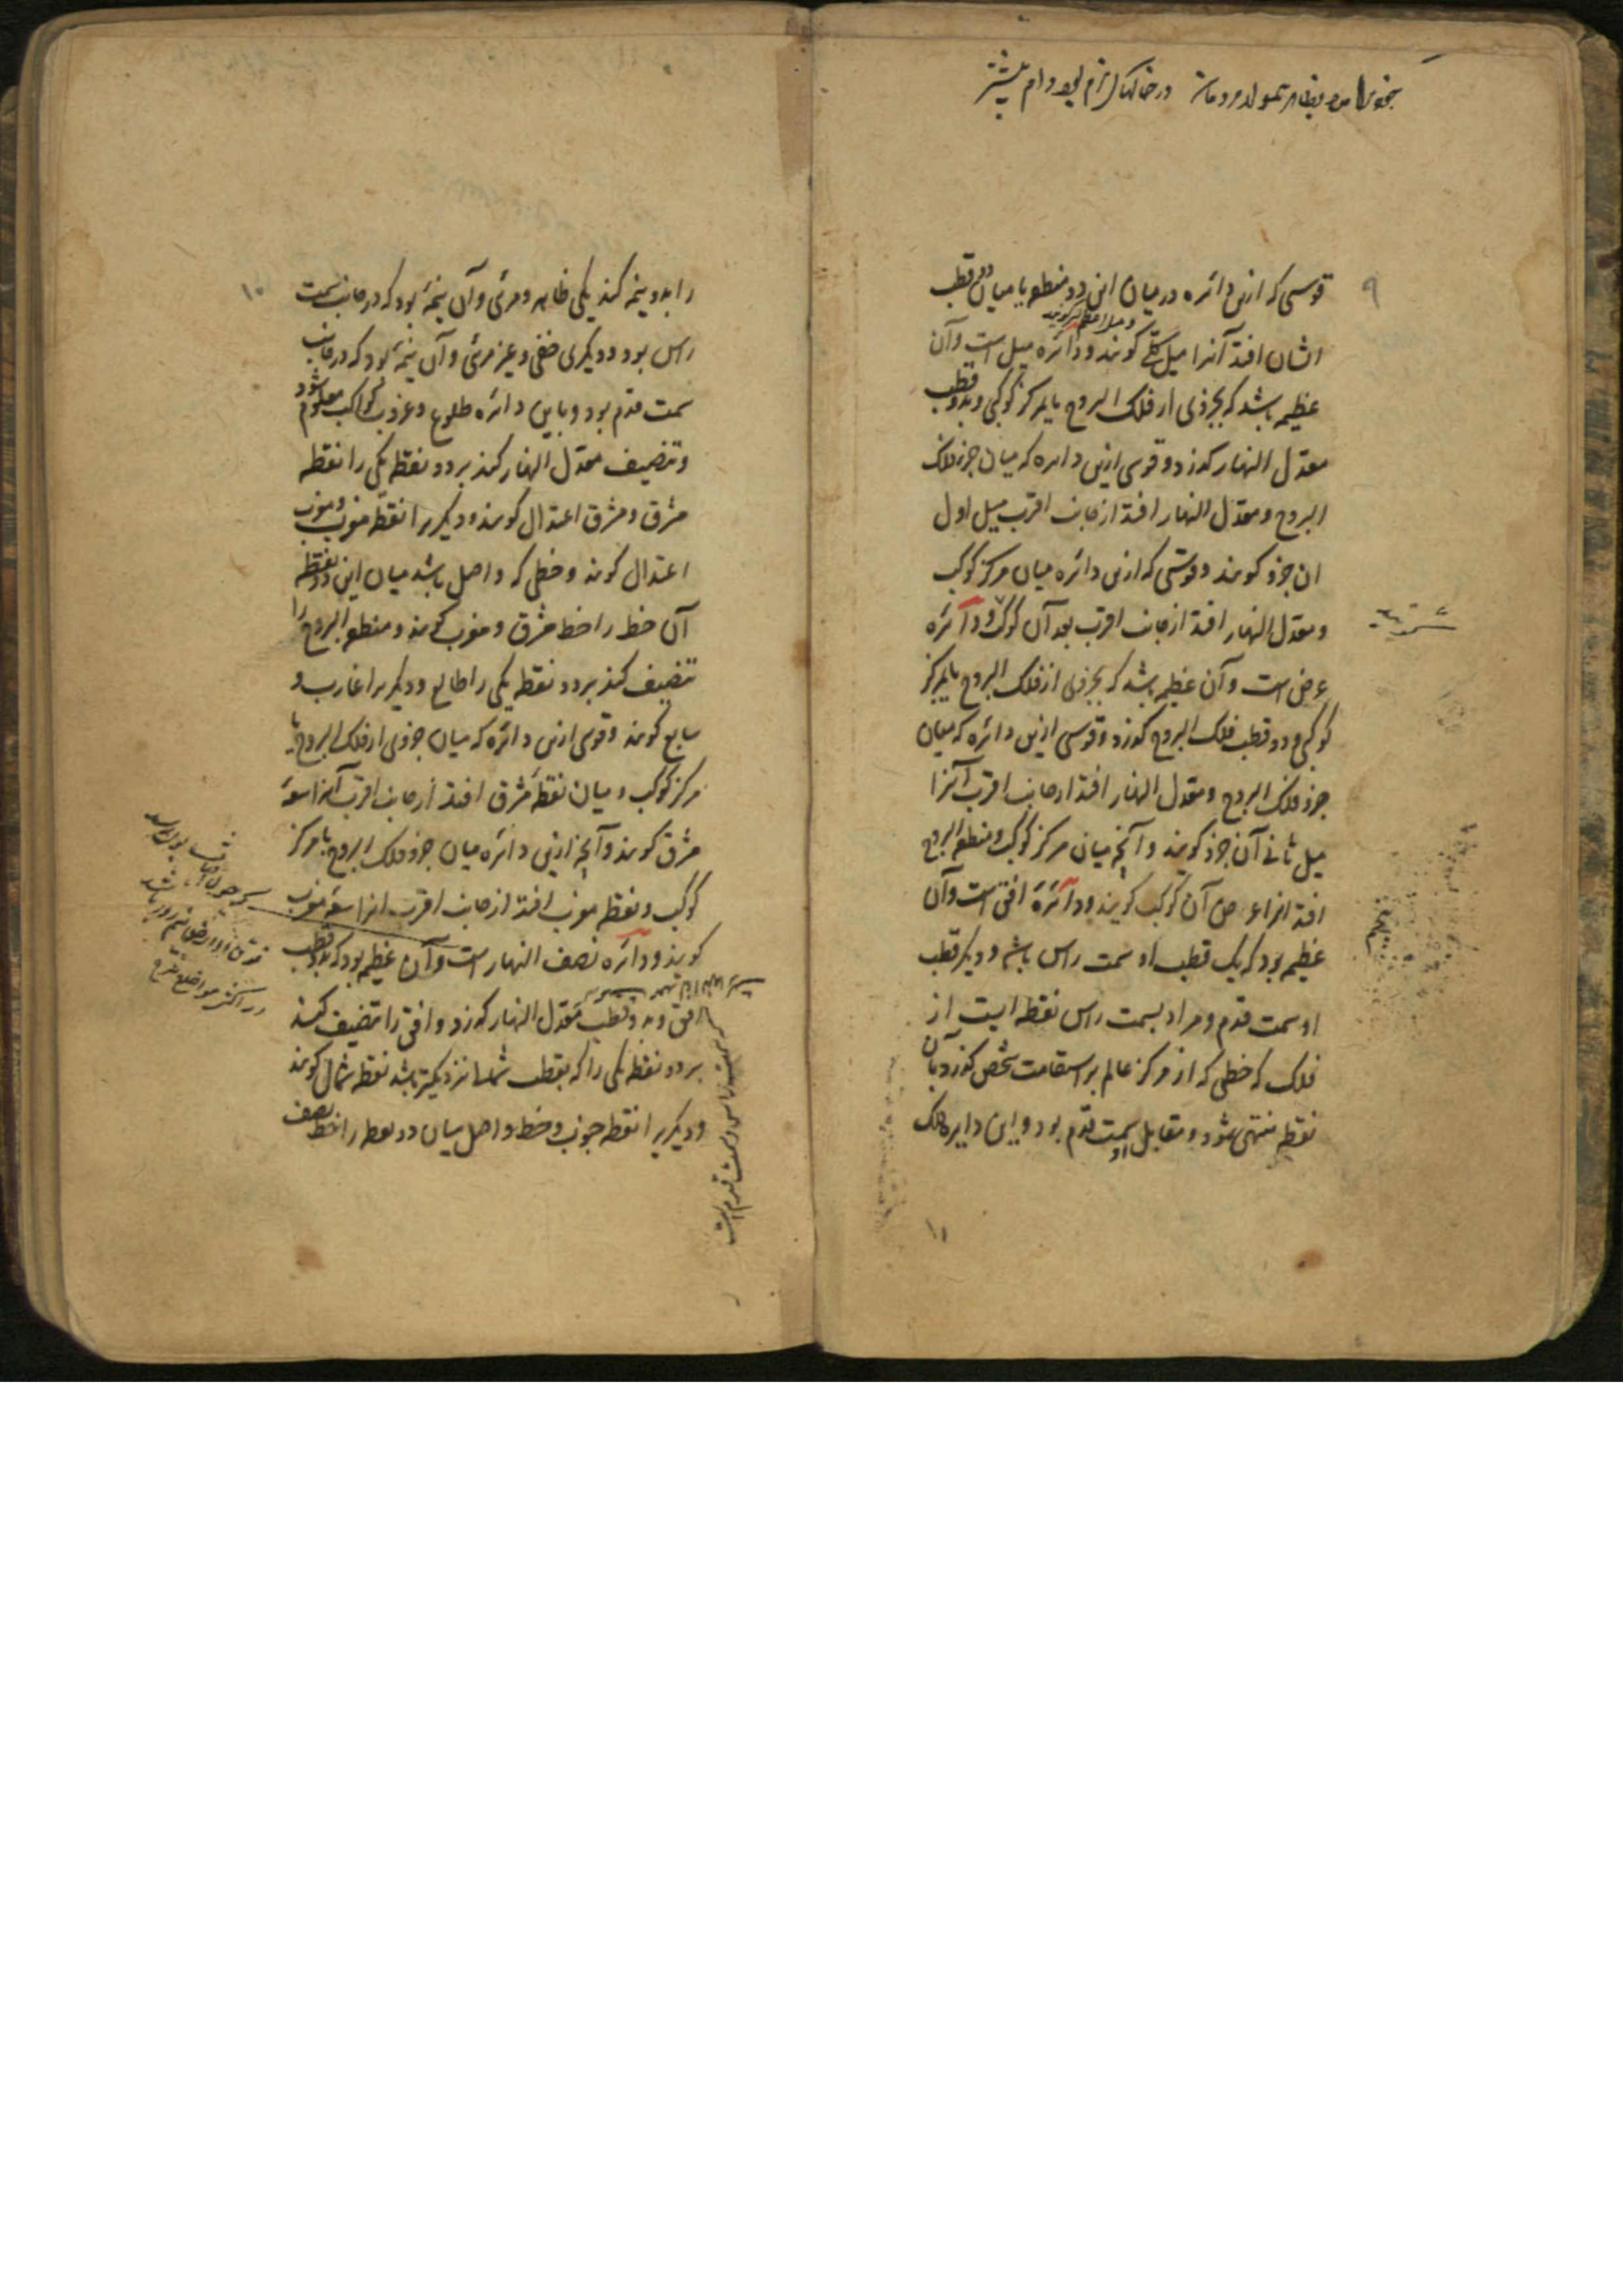 ۹
قوسی که ازین دائره در میان این دو منطقه یا میان دو قطب
ایشان افتد آنرا میل کلی گویند و دائره میل است وآن
عظیمه باشد که بجزوی از فلک البروج یا بمرکز کوکبی و بدو قطب
معدل النهار گذرد و قوسی ازین دایره که میان جزء فلک
البروج و معدل النهار افتد از جانب اقرب میل اول
ان جزو گویند و قوسی که ازین دائره میان مرکز کوکب
و معدل النهار افتد از جانب اقرب بعد آن کوکب و دآئره
عرض است وآن عظیمه باشد که بجزوی از فلک البروج یا بمرکز
کوکبی و دو قطب فلک البروج گذرد و قوسی ازین دائره که میان
جزو فلک البروج و معدل النهار افتد از جانب اقرب آنرا
میل ثانی آن جزو گویند و آنچه میان مرکز کوکب و منطقه البروج
افتد انرا عرض آن کوکب گویند و دآئرهٔ افق است وآن
عظیمه بود که یک قطب او سمت راس باشد و دیگر قطب
او سمت قدم و مراد بسمت راس نقطه ایست از
فلک که خطی که از مرکز عالم بر استقامت شخص گذرد بآن
نقطه منتهی شود و مقابل او سمت قدم بود و این دایره فلک
۱۱
۱۰
را بدو نیمه کند یکی ظاهر و مرئی وآن نیمهٔ بود که در جانب سمت
راس بود و دیگری خفی و غیر مرئی وآن نیمهٔ بود که در جانب
سمت قدم بود و باین دائره طلوع و غروب کواکب معلوم شود
و تنصیف معدل النهار کند بر دو نقطه یکی را نقطه
مشرق و مشرق اعتدال گویند و دیگریرا نقطه مغرب و مغرب
اعتدال گویند و خطی که واصل باشد میان این دو نقطه
آن خط را خط مشرق و مغرب گویند و منطقه البروج را
تنصیف کند بر دو نقطه یکی را طالع و دیگریرا غارب و
سابع گویند و قوسی ازین دائره که میان جزوی از فلک البروج یا
مرکز کوکب و میان نقطهٔ مشرق افتد از جانب اقرب آنرا سعهٔ
مشرق گویند وآنچه ازین دائره میان جزو فلک البروج یا مرکز
کوکب و نقطه مغرب افتد از جانب اقرب انرا سعهٔ مغرب
گویند و دآئره نصف النهار است وآن عظیمه بود که بدو قطب
افق و بدو قطب معدل النهار گذرد و افق را تنصیف کند
بر دو نقطه یکی را که بقطب شمالی نزدیکتر باشد نقطه شمال گویند
و دیگریرا نقطه جنوب و خط واصل میان دو نقطه را خط نصف
که سمت راس و سمت قدم است